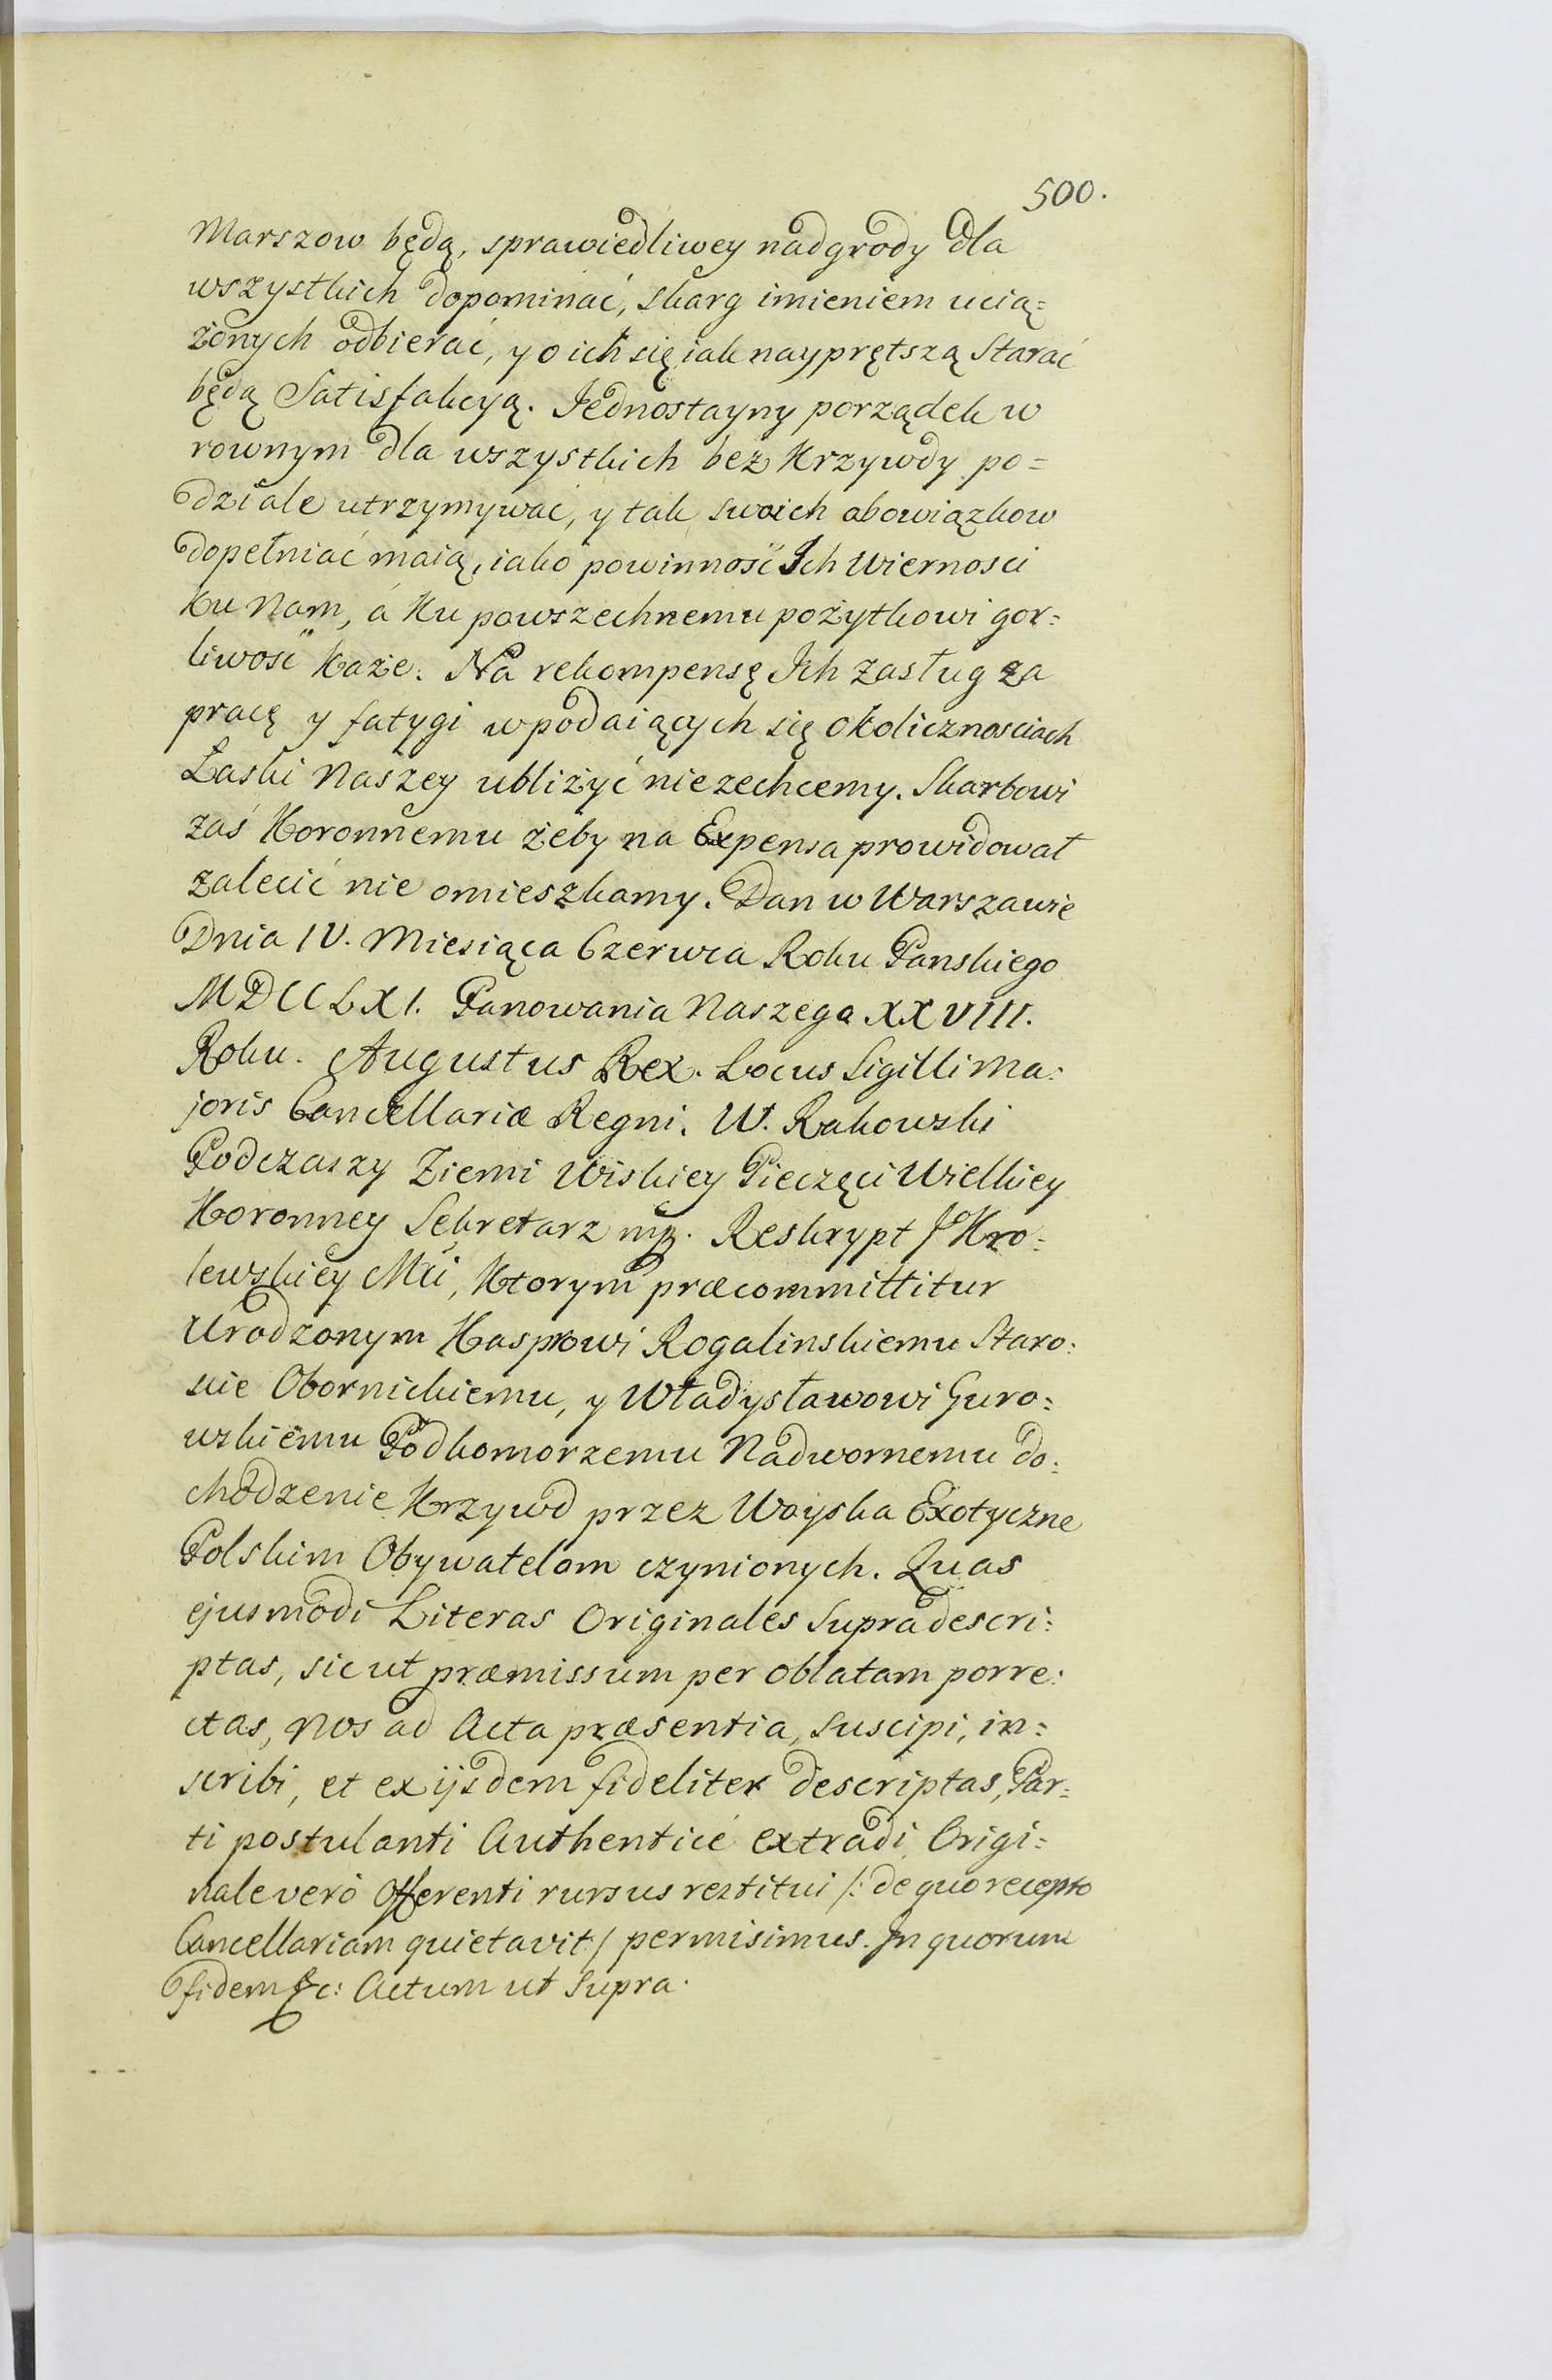 500.
Marszow będą, sprawiedliwey nadgrody dla
wszystkich dopominać, skarg imieniem ucią=
żonych odbierać, y o ich się iak nayprętszą Starać
będą Satisfakcyą. Jednostayny porządek w
rownym dla wszystkich bez Krzywdy po=
dziale utrzymywać, y tak swoich obowiązkow
dopełniać maią, iako powinność Ich Wiernosci
ku Nam, á Ku powszechnemu pożytkowi gor=
liwość Każe. Na rekompensę Ich Zasług za
pracę y fatygi w podaiących się okolicznosciach
Łaski Naszey ubliżyć niezechcemy. Skarbowi
zaś Koronnemu żeby na Expensa prowidował
zalecić nie omieszkamy. Dan w Warszawie
Dnia IV. Miesiąca Czerwca Roku Panskiego
MDCCLXI. Panowania Naszego XXVIII.
Roku. Augustus Rex. Locus Sigilli Ma:
joris Cancellariæ Regni. W. Rakowski
Podczaszy Ziemi Wiskiey Pieczęci Wielkiey
Koronney Sekretarz mp. Reskrypt J Kro=
lewskiey Mci, Ktorym præcommittitur
Urodzonym Kasprowi Rogalinskiemu Staro:
scie Obornickiemu, y Władysławowi Guro=
wskiemu Podkomorzemu Nadwornemu do:
chodzenie Krzywd przez Woyska Exotyczne
Polskim Obywatelom czynionych. Quas
ejusmodi Literas Originales Supra descri=
ptas, sicut præmissum per oblatam porre:
ctas, Nos ad Acta præsentia, suscipi, in=
scribi, et ex ijsdem fideliter descriptas, Par=
ti postulanti Authenticé extradi Origi=
nale veró Offerenti rursus restitui /: de quo recepto
Cancellariam quietavit:/ permisimus. In quorum
fidem &c: Actum ut Supra.